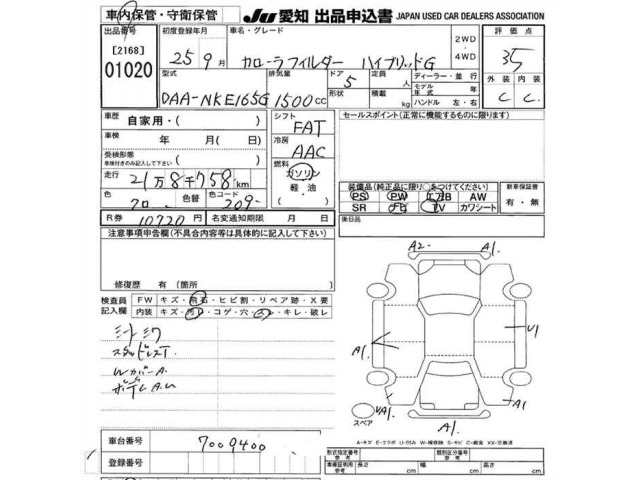 車内保管・守衛保管 JU 愛知 出品申込書 JAPAN USED CAR DEALERS ASSOCIATION
出品番号 初度登録年月 車名・グレード 2WD 評価点
[2168] 25 9月 カローラフィルダー ハイブリッドG ・ 35
01020 4WD
型式 排気量 ドア 定員 ディーラー・並行 外装 内装
DAA-NKE165G 1500cc 5 人 モデル年式 C C
形状 積載 kg ハンドル 左・右
車歴 自家用・( ) シフト セールスポイント(正常に機能するものに限ります)
FAT
車検 年 月(日) 冷房
AAC
受検形態 ( )
車検付きのみ記入して下さい
燃料
走行 21万8千758km ガソリン 装備品(純正品に限り○をつけてください) 新車保証書
軽・油 PS PW エアB AW 有・無
色 クロ 色替 色コード 209 ( ) SR TV カワシート
R券 10720円 名変通知期限 月 日 後日品
注意事項申告欄(不具合内容等は具体的に記入して下さい)
修復歴 有 〔箇所 〕
検査員 FW キズ・飛石・ヒビ割・リペア跡・X要
記入欄 内装 キズ・コゲ・穴・キレ・破レ
A2 A1
U1
A1
A1
A1
スペア
A-キズ E-エクボ U-凹み W-補修跡 S-サビ C-腐食 XX-交換済
車台番号 7009400
登録番号
形式指定番号 類別区分番号
参考 参考
車庫証明用 長さ cm 幅 cm 高さ cm
参考